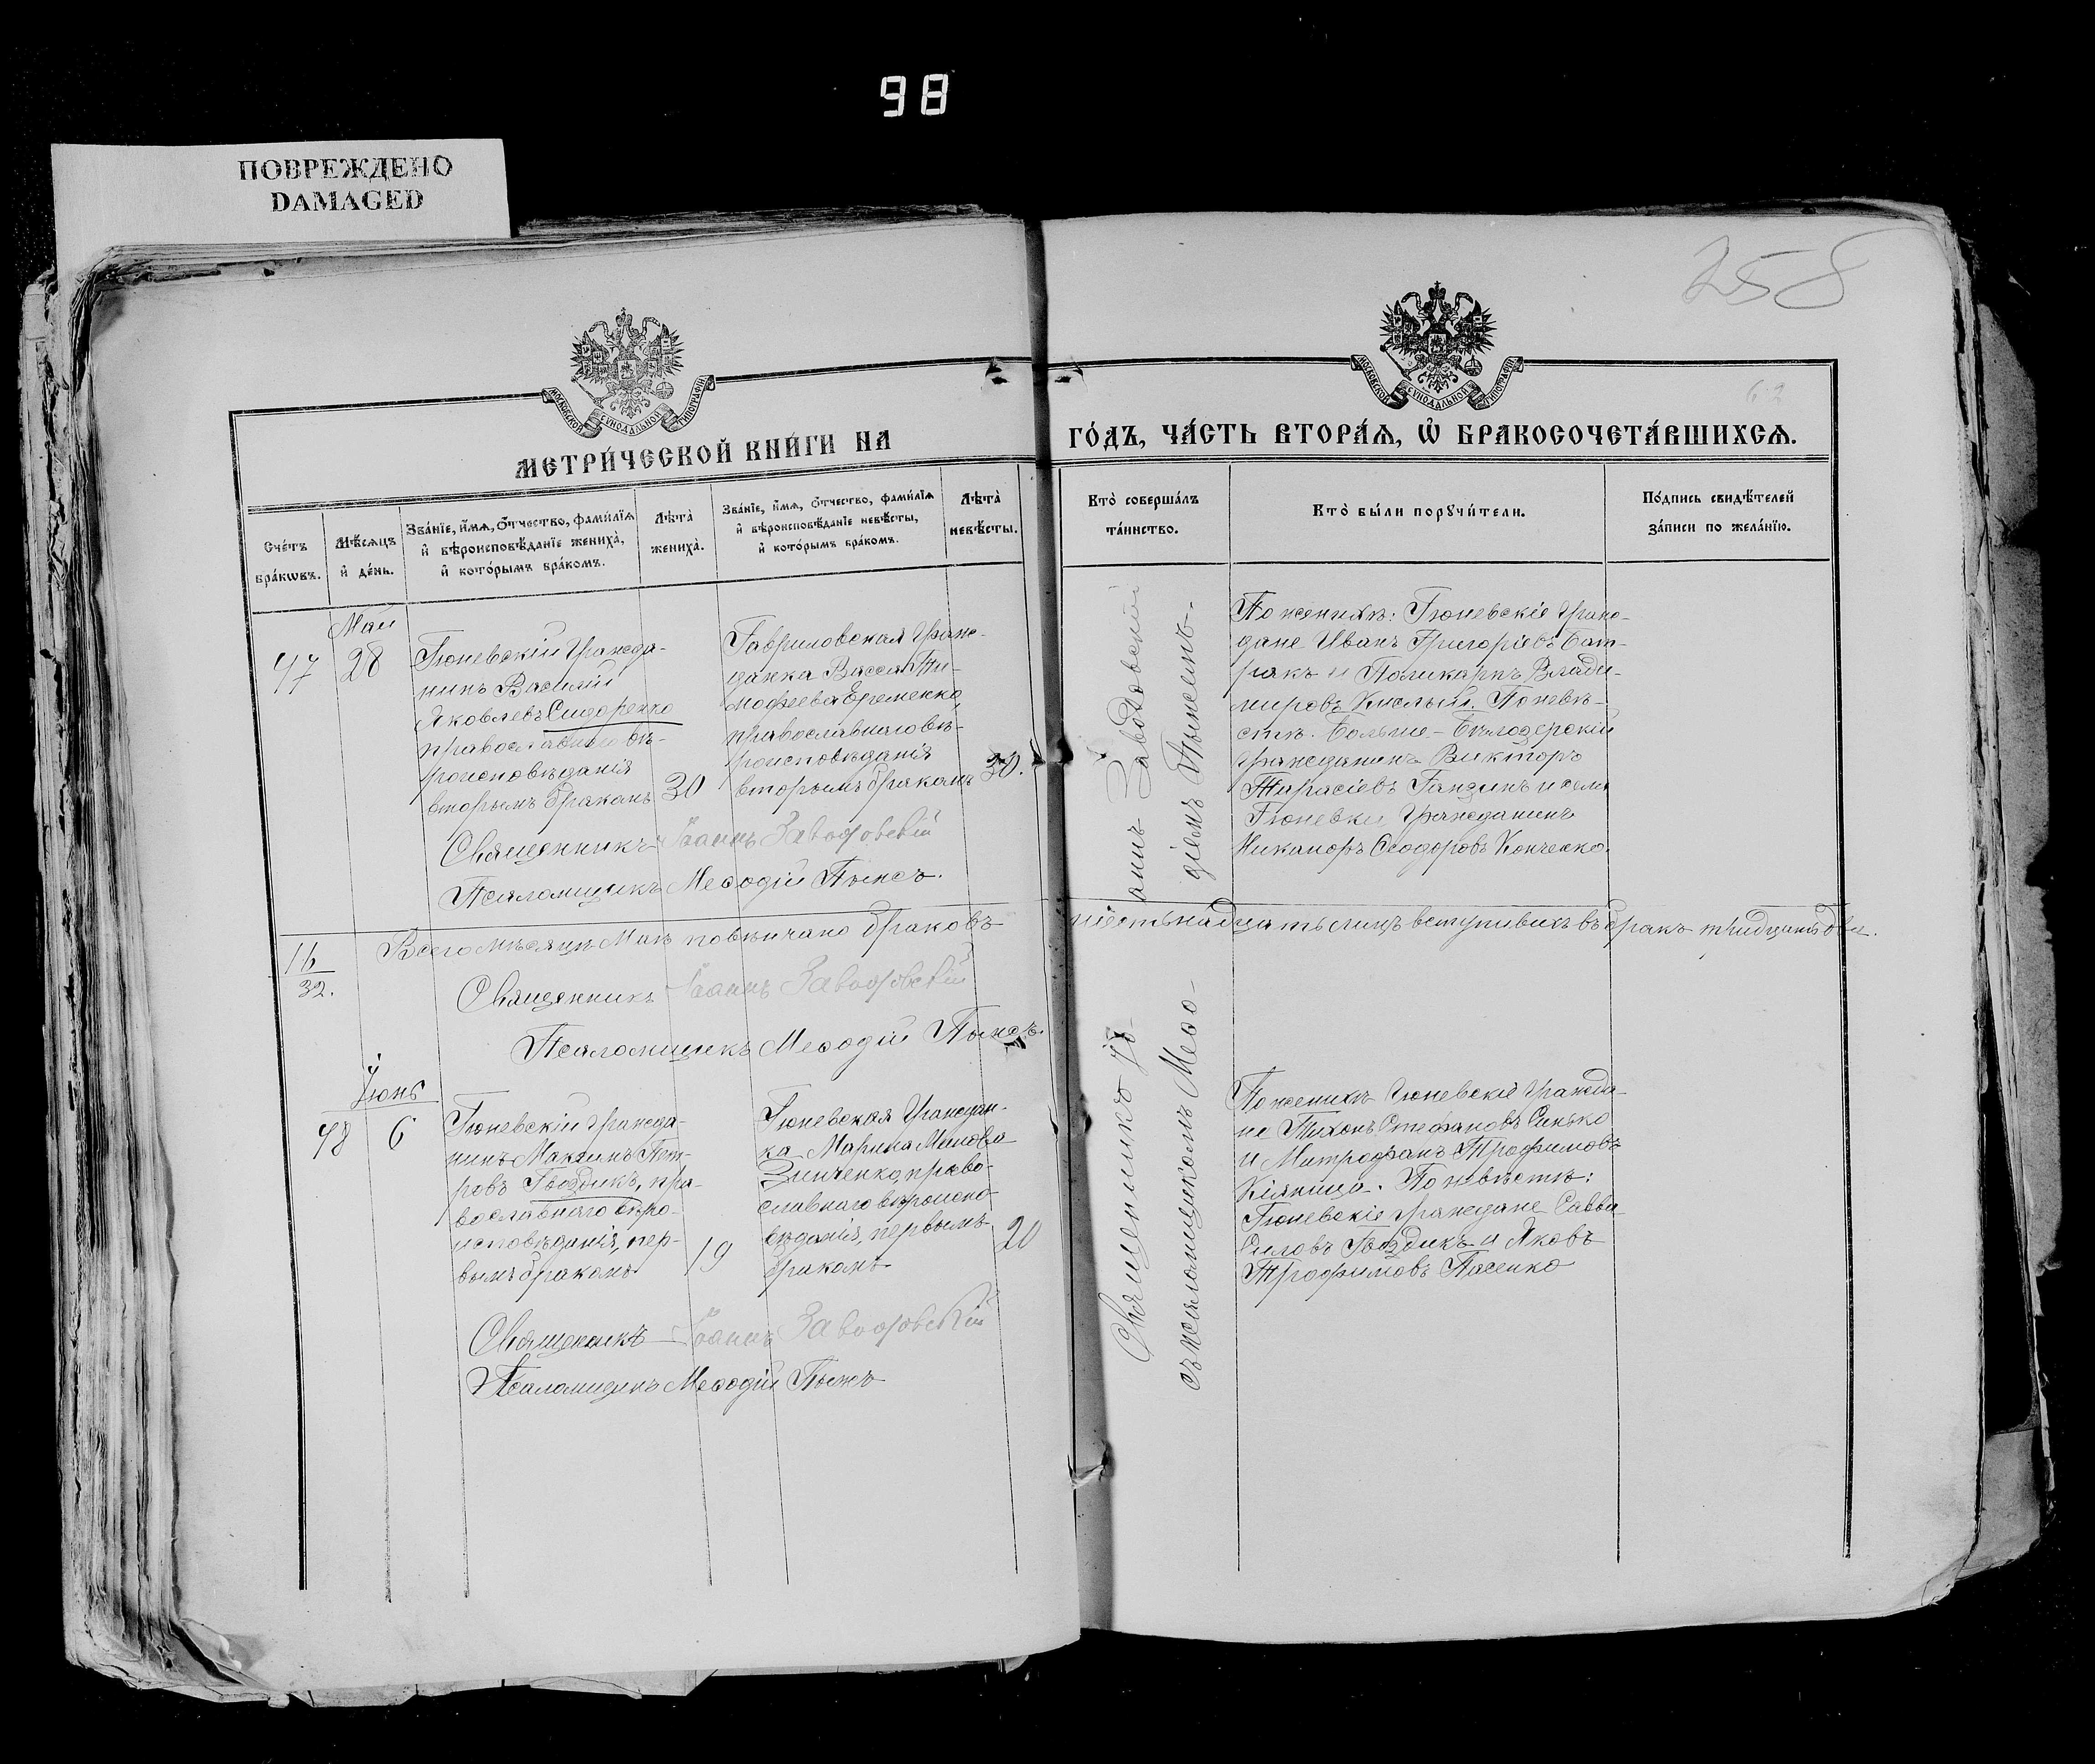 98
ПОВРЕЖДЕНО
DAMAGED
258
МОСКОВСКОЙ СѴНОДАЛЬНОЙ ТИПОГРАФІИ
МОСКОВСКОЙ СѴНОДАЛЬНОЙ ТИПОГРАФІИ
62
МЕТРИ́ЧЕСКОЙ КНИ́ГИ НА
ГО́ДЪ, ЧА́СТЬ ВТОРА́Ѧ, Ѽ БРАКОСОЧЕТА́ВШИХСѦ.
Сче́тъ
бра́кѡвъ.
Мѣ́сѧцъ
и҆ де́нь.
Зва́нїе, и҆́мѧ, ѻ҆́тчество, фами́лїѧ
и҆ вѣроисповѣ́данїе жениха̀,
и҆ кото́рымъ бра́комъ.
Лѣта̀
жениха̀.
Зва́нїе, и҆́мѧ, ѻ҆́тчество, фами́лїѧ
и҆ вѣроисповѣ́данїе невѣ́сты,
и҆ кото́рымъ бра́комъ.
Лѣта̀
невѣ́сты.
Кто̀ соверша́лъ
та́инство.
Кто̀ бы́ли порꙋчи́тели.
По́дпись свидѣ́телей
за́писи по жела́нїю.
Май
47
28
Гюневскій гражда-
нинъ Василій
Яковлевъ Сидоренко
православнаго вѣ-
роисповѣданія
вторымъ бракомъ
30
Гавриловская граж-
данка Васса Ти-
мофеева Еременко,
православнаго вѣ-
роисповѣданія
вторымъ бракомъ
30.
По женихѣ: Гюневскіе граж-
дане Иванъ Григоріевъ Бат-
ракъ и Поликарпъ Влади-
мировъ Кислый. По невѣ-
стѣ. Больше-Бѣлозерскій
гражданинъ Викторъ
Тарасіевъ Ганзинъ и села
Гюневки гражданинъ
Никаноръ Ѳеодоровъ Конченко.
Священникъ Іоаннъ Заводовскій
Псаломщикъ Меѳодій Пыжъ.
16
32.
Всего мѣсяцѣ Маѣ повѣнчано браковъ шестьнадцать лицъ вступивихъ въ бракъ тридцать два.
Священникъ Іоаннъ Заводовскій
Псаломщикъ Меѳодій Пыжъ.
Іюнь
48
6
Гюневскій гражда-
нинъ Максимъ Пет-
ровъ Гвоздикъ, пра-
вославнаго вѣро-
исповѣданія, пер-
вымъ бракомъ
19
Гюневская граждан-
ка Марина
Зинченко, право-
славнаго вѣроиспо-
вѣданія, первымъ
бракомъ
20
Священникъ Іо-
аннъ Заводовскій
съ псаломщикомъ Меѳо-
діемъ Пыжемъ.
По женихѣ Гюневскіе гражда-
не Тихонъ Стефановъ Синько
и Митрофанъ Трофимовъ
Кіяница. По невѣстѣ:
Гюневскіе граждане Савва
Силовъ Гвоздикъ и Яковъ
Трофимовъ Пасенко
Священникъ Іоаннъ Заводовскій
Псаломщикъ Меѳодій Пыжъ